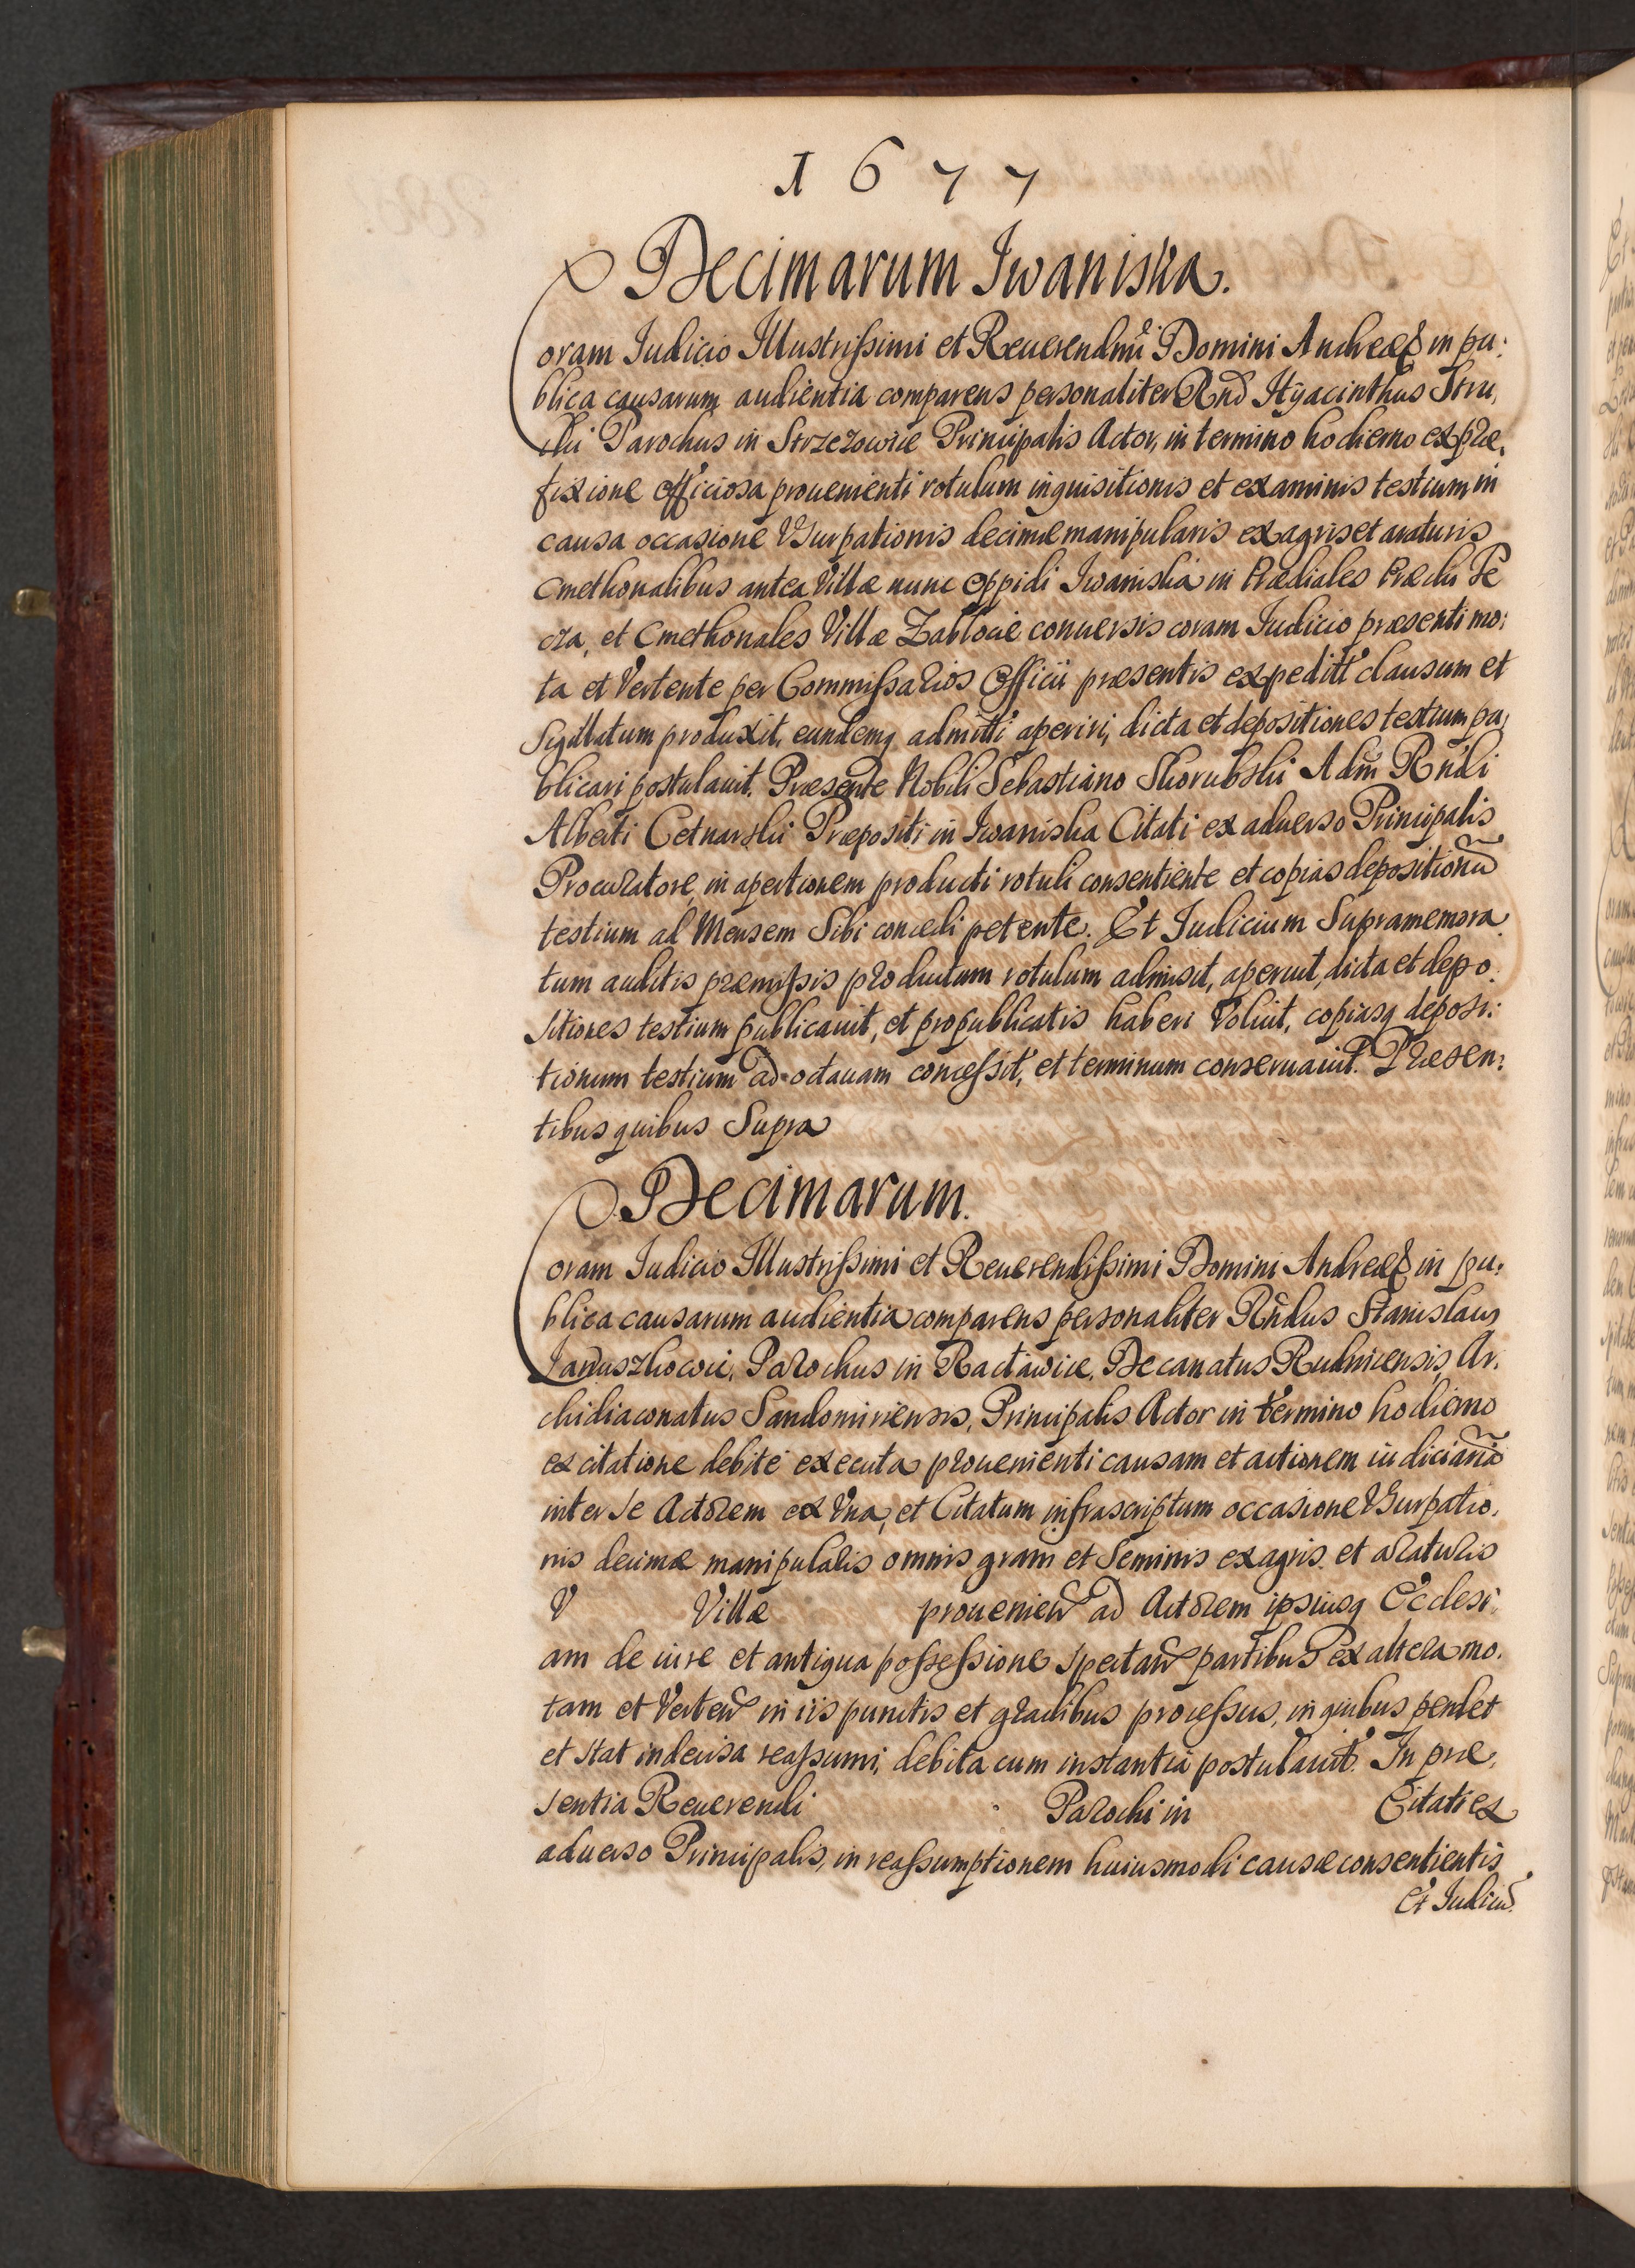 1677
Decimarum Iwaniska.
Coram Iudicio Illustrissimi et Reuerendmi Domini Andreæ in pu:
blica causarum audientia comparens personaliter Rnd Hyacinthus Stru,
ski Parochus in Strzezowice Principalis Actor, in termino hodierno ex præ,
fixione officiosa prouenienti rotulum inquisitionis et examinis testium in
causa occasione Vsurpationis decimæ manipularis ex agris et araturis
Cmethonalibus antea Villæ nunc Oppidi Iwaniska in Prædiales Prædii
et Cmethonales Villæ Zabłocie conuersis coram Iudicio præsenti mo:
ta et Vertente per Commissarios Officii præsentis expeditt clausum et
Sigillatum produxit, eundemq admitti aperiri, dicta et depositiones testium pu,
blicari postulauit. Præsente Nobili Sebastiano Skorubski Adm Rndi
Alberti Cetnarski Præpositi in Iwaniska Citati ex aduerso Principalis
Procuratore, in apertionem producti rotuli consentiente et copias depositionu
testium ad Mensem Sibi concedi petente. Et Iudicium Supramemora
tum auditis præmissis productum rotulum admisit, aperuit, dicta et depo.
sitiones testium publicauit, et pro publicatis haberi Voluit, copiasq deposi:
tionum testium ad octauam concessit, et terminum conseruauit. Præsen:
tibus quibus Supra
Decimarum.
Coram Iudicio Illustrissimi et Reuerendissimi Domini Andreæ in pu:
blica causarum audientia comparens personaliter Rndus Stanislaus
Januszkowic, Parochus in Racławice, Decanatus Rudnicensis, Ar,
chidiaconatus Sandomiriensis, Principalis Actor in termino hodierno
ex citatione debite executa prouenienti causam et actionem iudiciariã
inter Se Actorem ex Vna, et Citatum infrascriptum occasione Vsurpatio,
nis decimæ manipularis omnis grani et Seminis ex agris et araturis
V Villæ prouenien ad Actorem ipsiusq Ecclesi:
am de iure et antiqua possessione spectan partibus ex altera mo.
tam et Verten in iis punctis et gradibus processus, in quibus pendet
et stat indecisa reassumi, debita cum instantia postulauit. In præ,
sentia Reuerendi Parochi in Citati ex
aduerso Principalis, in reassumptionem huiusmodi causæ consentientis
Et Iudiciu